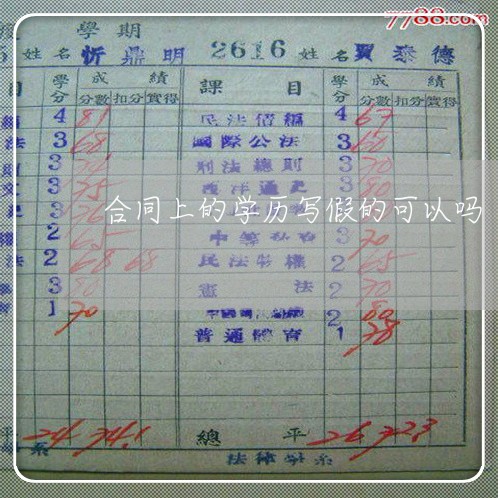 7788.com
學期
5 姓名 忻鼎明 2616 姓名 賈泰德
目 學分 成績 分數 扣分 實得 課目 學分 成績 分數 扣分 實得
4 81 民法債編 4 67
法 3 68 國際公法 3 60
3 刑法總則 3 70
3 75 西洋通史 3 80
合同上的学历写假的可以吗
2 65 3 70
法 2 68 68 民法物權 2 65
3 80 憲法 2 70
1 70 2 80
普通體育 1 78
平 24 74.1 總平 26 72.3
系 法律學系